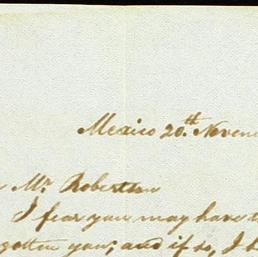 Mexico 20.th Novem
Mr. Robertson
I fear you may have
gotten you; and if so, I